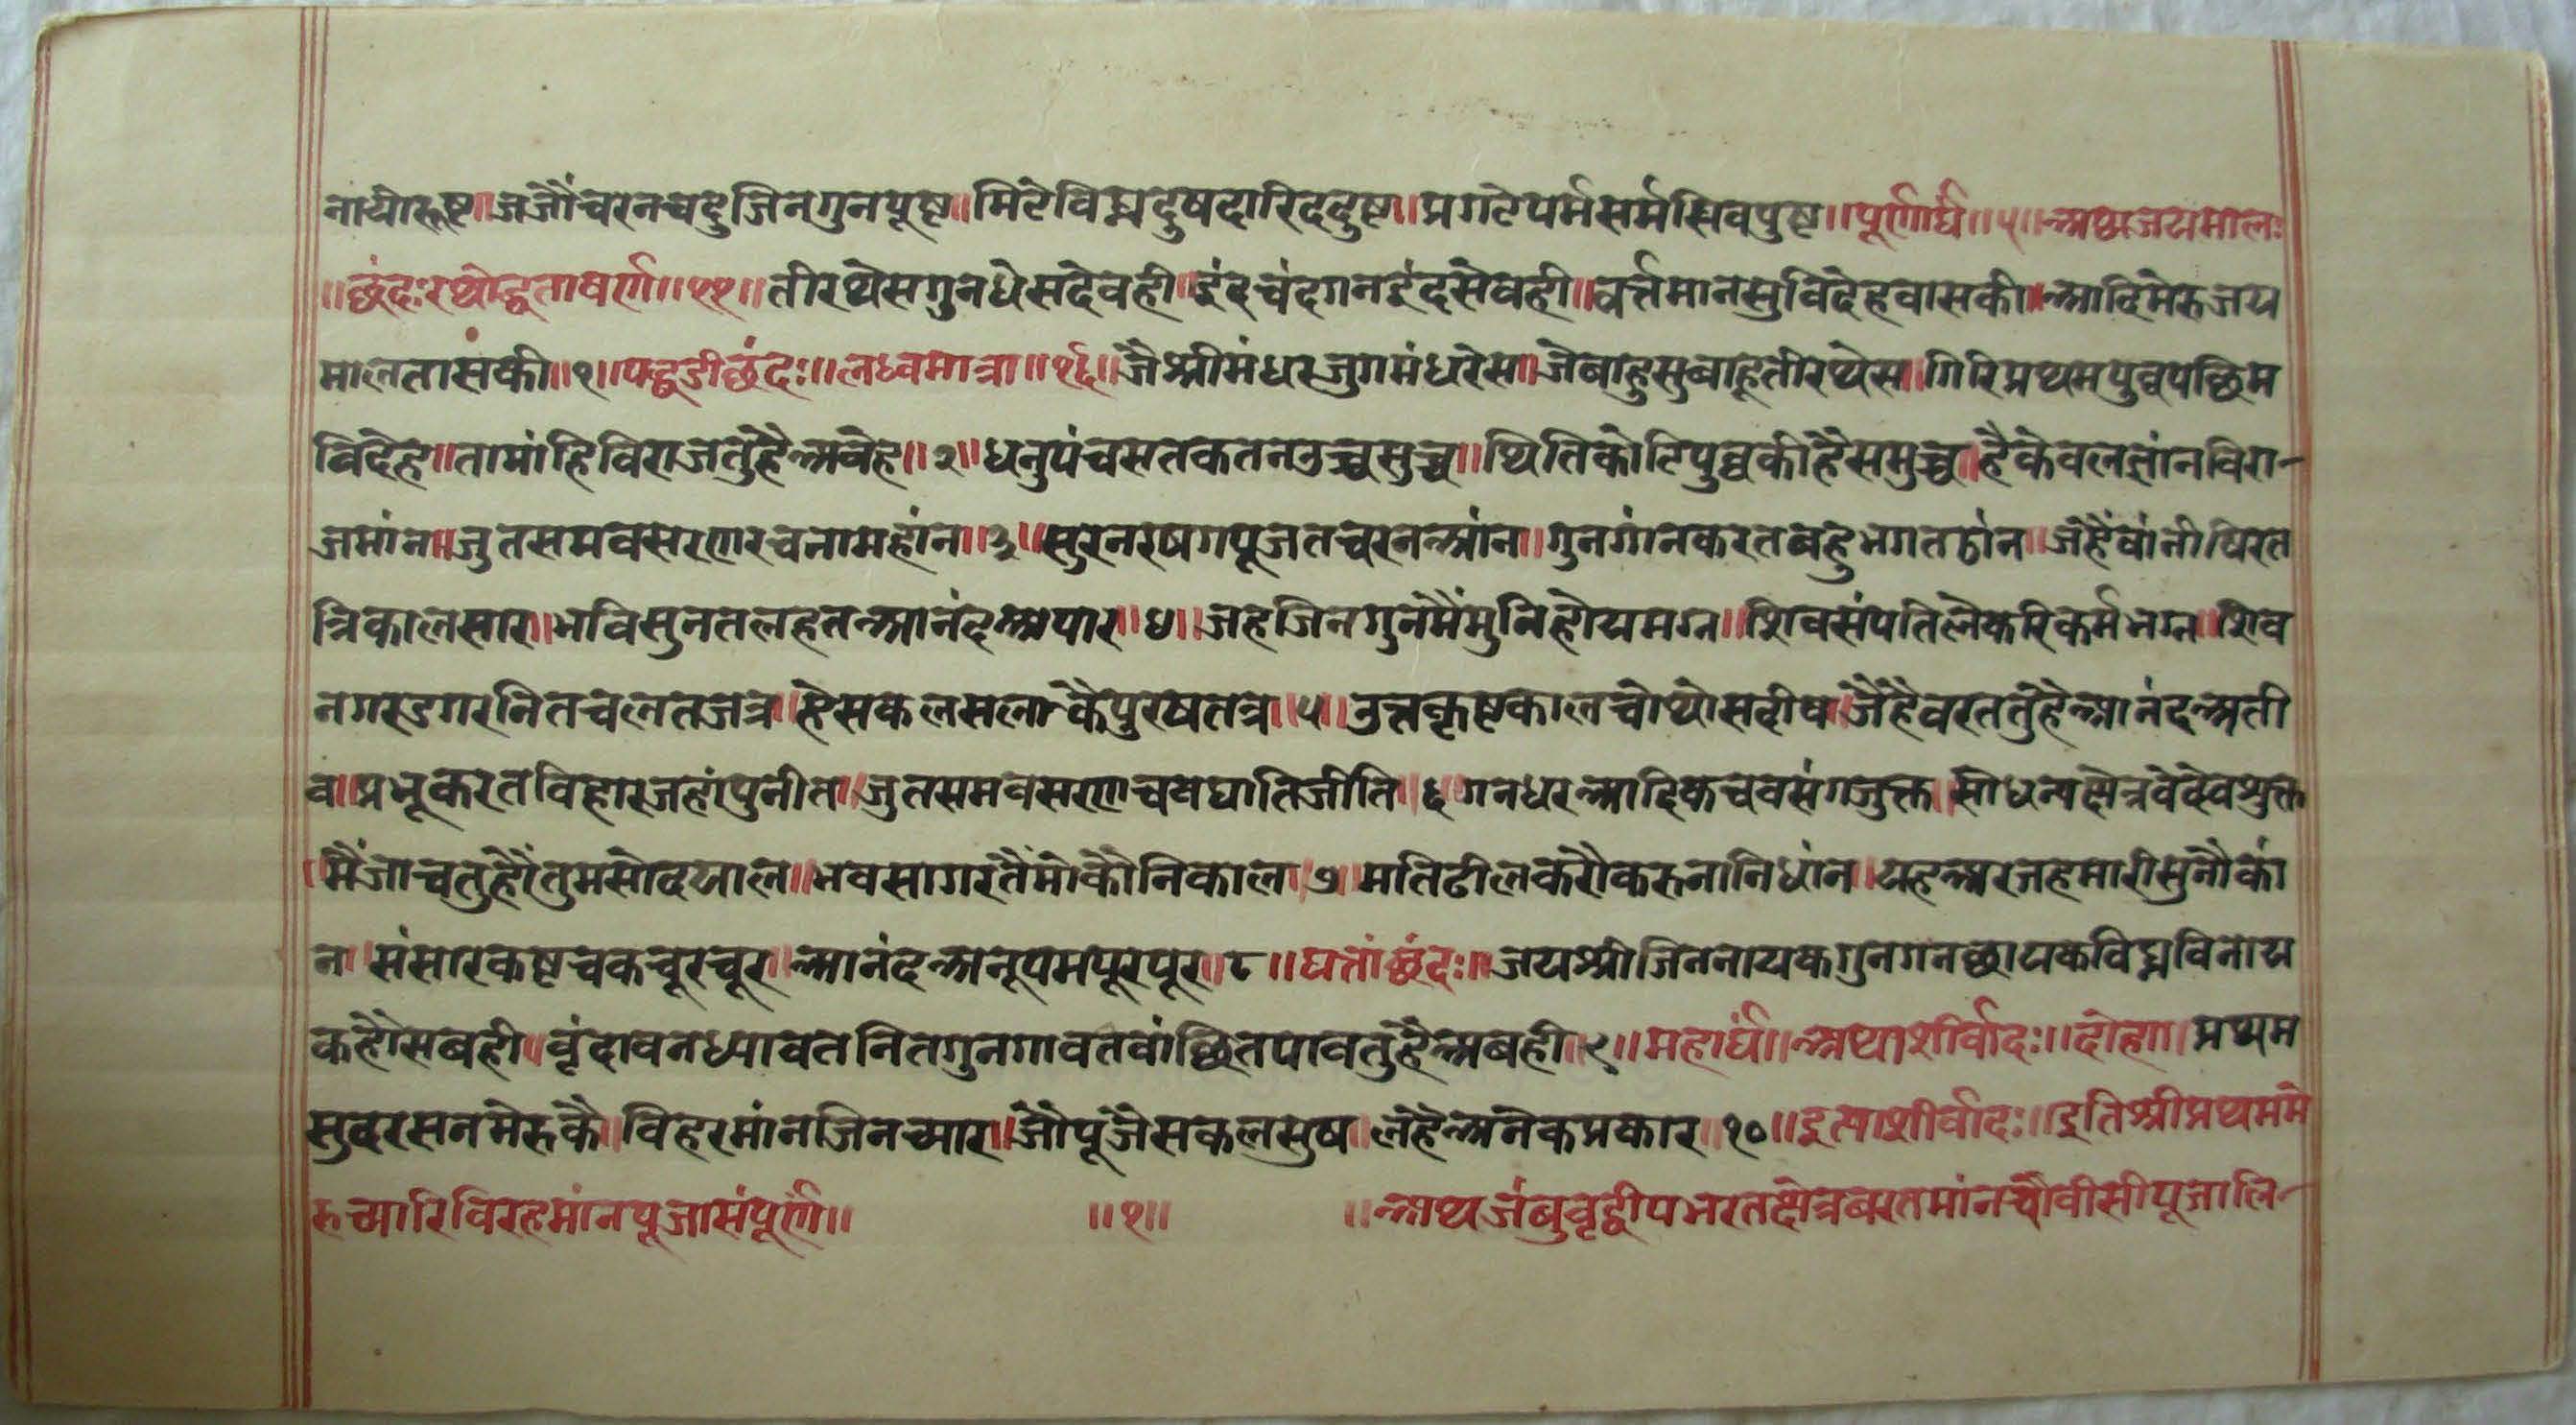 नायीरूष्ट॥जजौंचरनचदुजिनगुनपूष्ट॥मिटेविघ्नदुषदारिददुष्ट॥प्रगटेपर्मसर्मसिवपुष्ट॥पूर्णार्घ॥५॥अथजयमालः
॥छंदःरथोद्धतावर्ण॥११॥तीरथेसगुनधेसदेवही॥इंद्रचंदगनइंदसेवही॥वर्त्तमानसुविदेहवासकी॥आदिमेरुजय
मालतासकी॥१॥पद्धडीछंदः॥लध्वमात्रा॥१६॥जैश्रीमंधरजुगमंधरेस॥जेबाहुसुबाहूतीरथेस॥गिरिप्रथमपुव्वपच्छिम
विदेह॥तामांहिविराजतुहैअबेह॥२॥धनुपंचसतकतनउच्चसुच्च॥थितिकोटिपुव्वकीहैसमुच्च॥हैकेवलज्ञांनविरा-
जमांन॥जुतसमवसरणरचनामहांन॥३॥सुरनरषगपूजतचरनआंन॥गुनगांनकरतबहुभगतठांन॥जहैंवांनीषिरत
त्रिकालसार॥भविसुनतलहतआनंदअपार॥४॥जहजिनगुनमैंमुनिहोयमग्न॥शिवसंपतिलेकरिकर्मभग्न॥शिव
नगरडगरनितचलतजत्र॥हैसकलसलाकैपुरषतत्र॥५॥उत्तकृष्टकालचोथोसदीव॥जैहैवरततुहैआनंदअती
व॥प्रभूकरतविहारजहांपुनीत॥जुतसमवसरणचवघातिजीति॥६॥गनधरआदिकचवसंगजुक्त॥सोधन्यक्षेत्रवेदेवश्रुक्त
॥मैंजाचतुहौंतुमसोदयाल॥भवसागरतैंमोकौनिकाल॥७॥मतिढीलकरौकरुनानिधांन॥यहअरजहमारीसुनौकां
न॥संसारकष्टचकचूरचूर॥आनंदअनूपमपूरपूर॥८॥घत्तांछंदः॥जयश्रीजिननायकगुनगनछायकविघ्नविनाय
कहौसबही॥वृंदावनध्यावतनितगुनगावतवांछितपावतुहैअबही॥९॥महार्घं॥अथाशीर्वादः॥दोहा॥प्रथम
सुदरसनमेरुकै॥विहरमांनजिनच्यार॥जोपूजैसकलसुष॥लहैअनेकप्रकार॥१०॥इत्याशीर्वादः॥इतिश्रीप्रथममे
रुच्यारिविरहमांनपूजासंपूर्ण॥ ॥१॥ ॥अथजंबुवृद्वीपभरतक्षेत्रबरतमांनचौवीसीपूजालि-